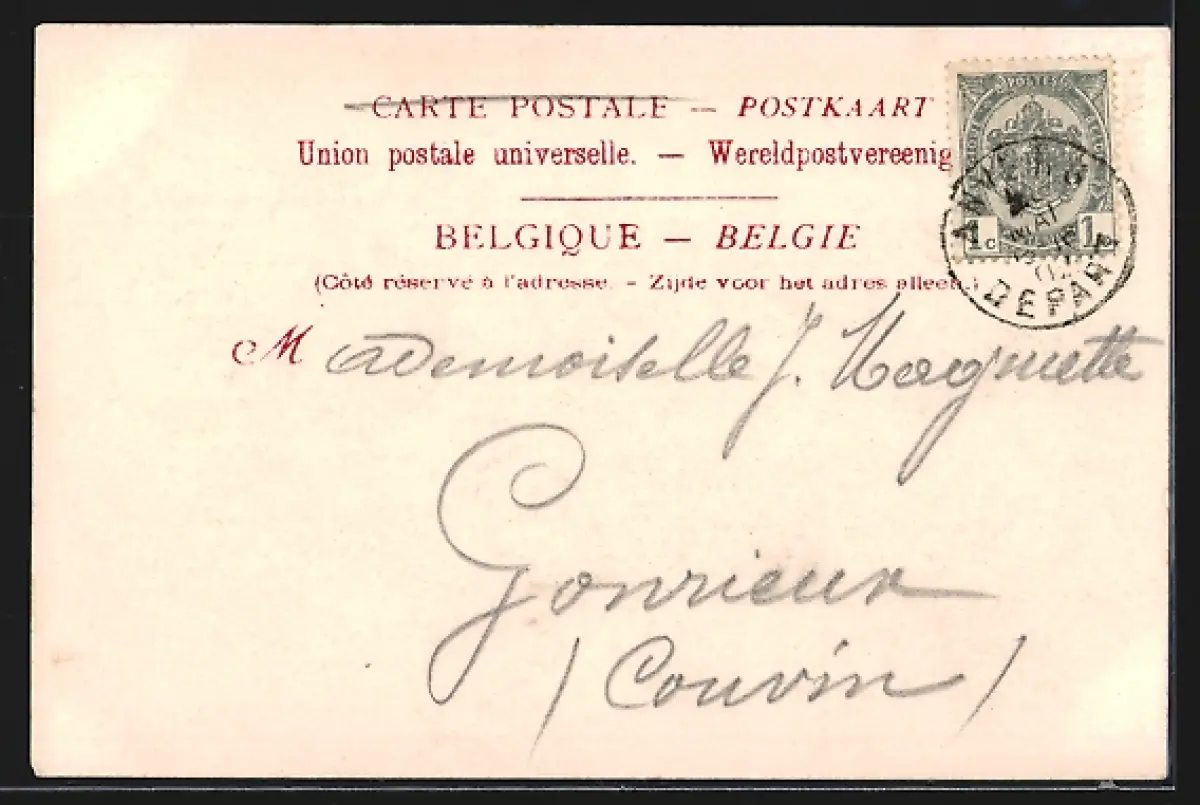 CARTE POSTALE — POSTKAART
Union postale universelle. — Wereldpostvereenig
BELGIQUE — BELGIE
(Côté réservé à l'adresse. - Zijde voor het adres alleen.)
Mademoiselle J. Maquette
Gonrieux
(Couvin)
POSTES
1c 1c
ANVERS
MAI
DEPART